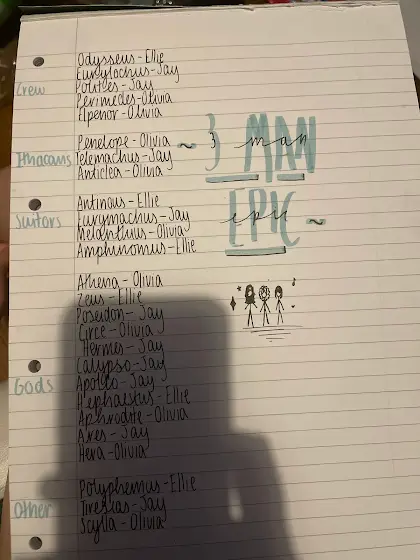 Crew
Odysseus - Ellie
Eurylochus - Jay
Polites - Jay
Perimedes - Olivia
Elpenor - Olivia
Ithacans
Penelope - Olivia
Telemachus - Jay
Anticlea - Olivia
~ 3 MAN
man
EPIC ~
epic
Suitors
Antinous - Ellie
Eurymachus - Jay
Melanthius - Olivia
Amphinomus - Ellie
Gods
Athena - Olivia
Zeus - Ellie
Poseidon - Jay
Circe - Olivia
Hermes - Jay
Calypso - Jay
Apollo - Jay
Hephaestus - Ellie
Aphrodite - Olivia
Ares - Jay
Hera - Olivia
Other
Polyphemus - Ellie
Tiresias - Jay
Scylla - Olivia